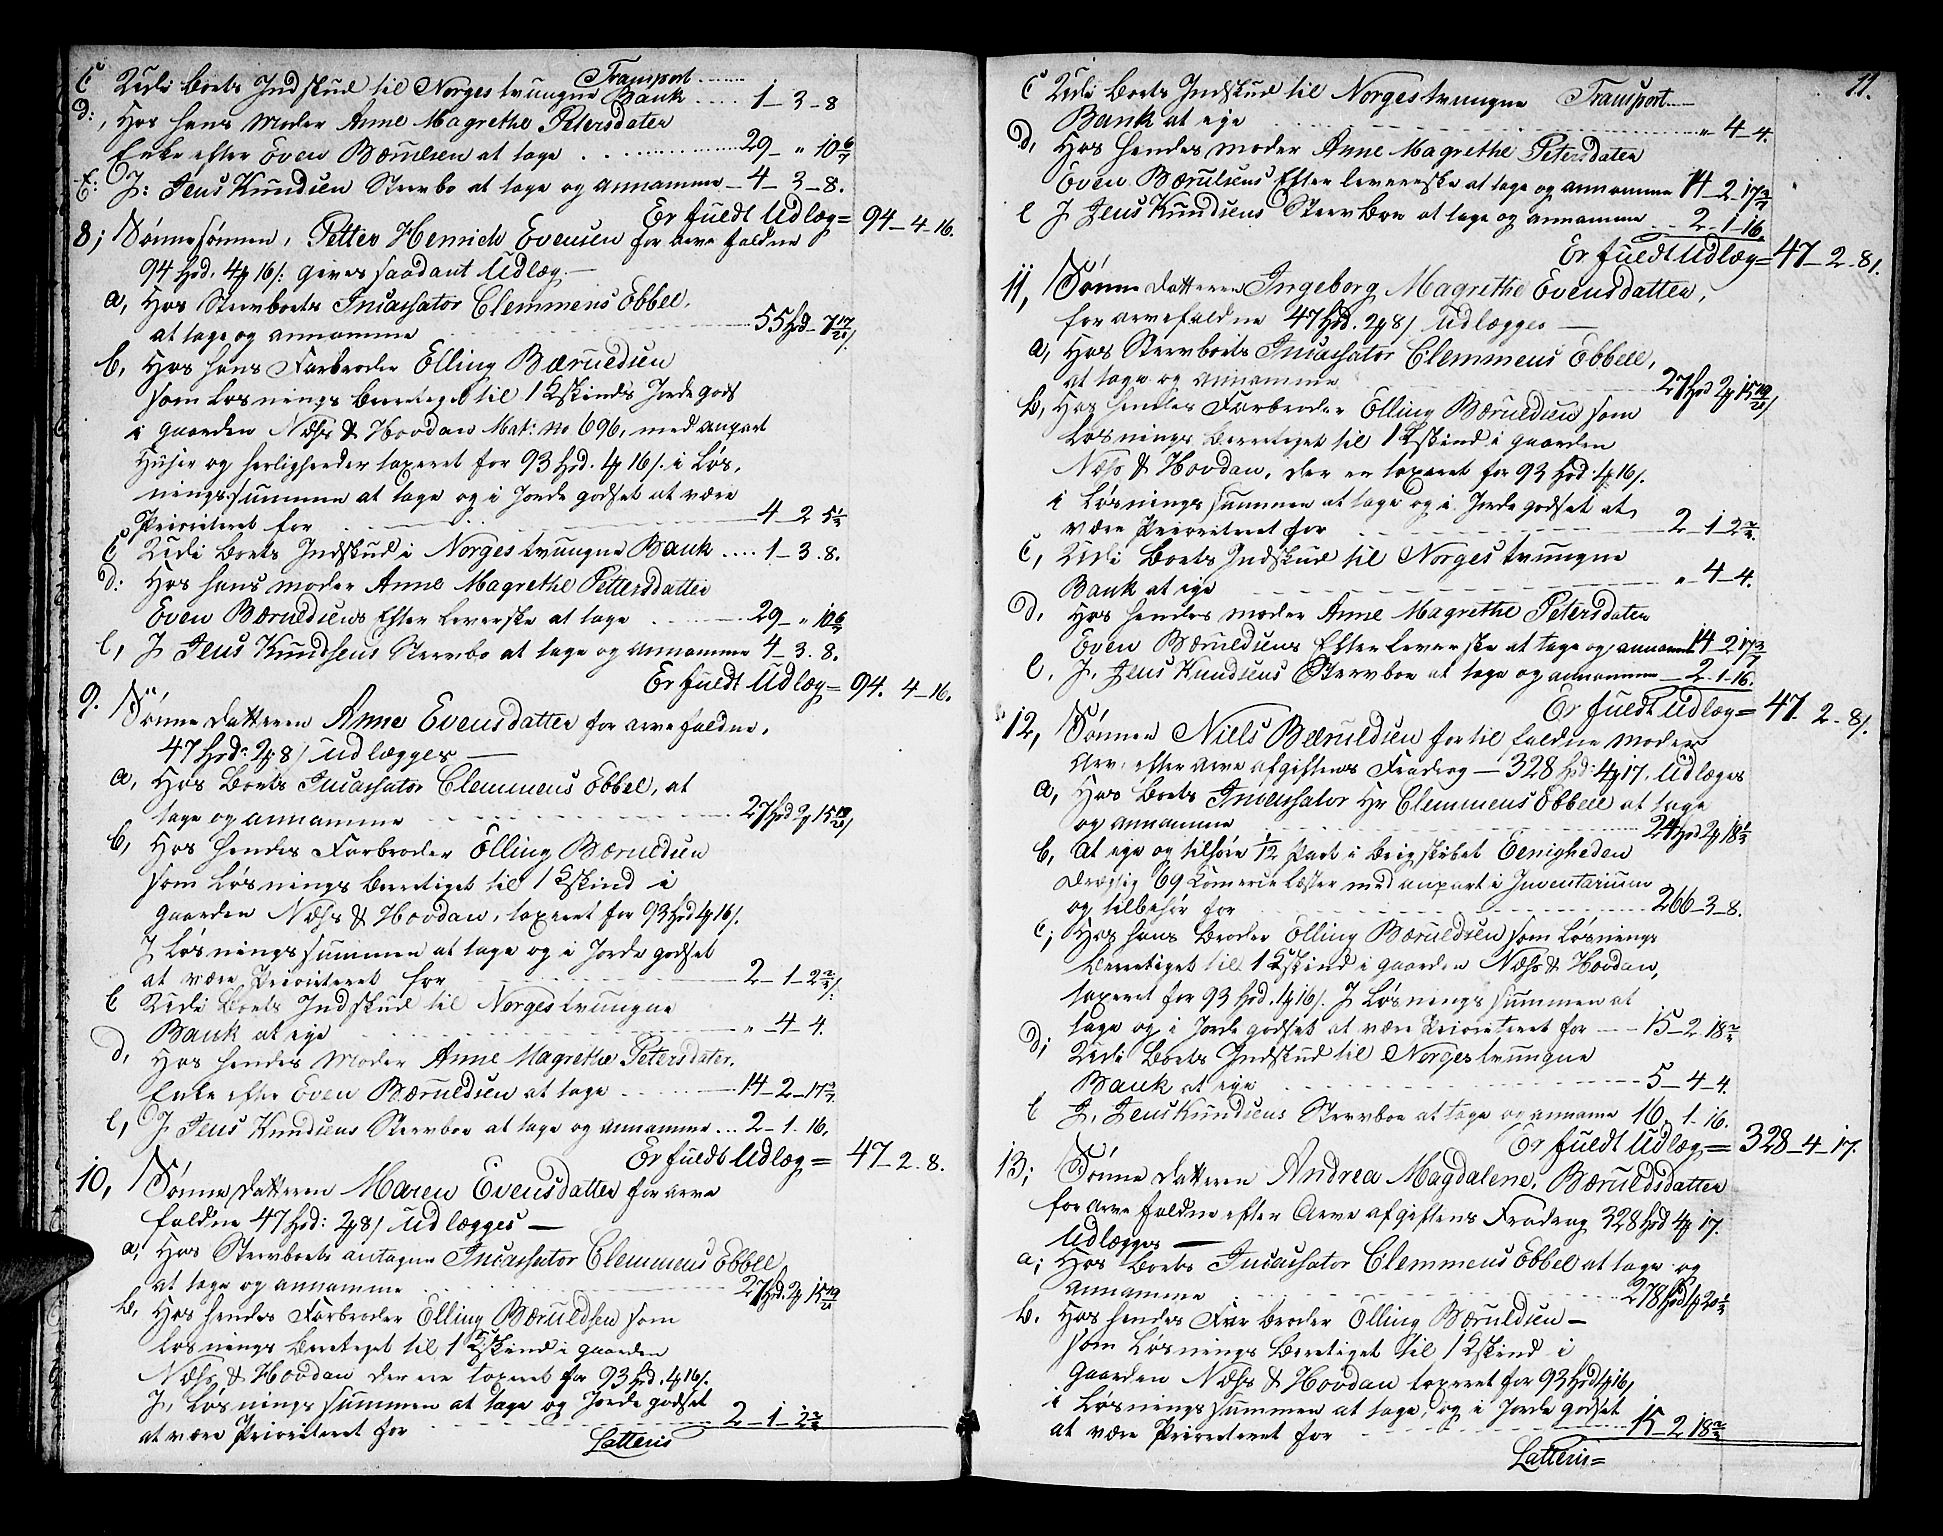 Transport
C Udi Boets Indskud til Norges tvungne Bank 1-3-8
D: Hos hans Moder Anne Magrethe Petersdater
Enke efter Even Bæruldsen at tage 29-"10 6/7
E: I: Jens Kundsen Stervbo at tage og annamme 4-3-8.
Er fuldt Udlæg= 94-4-16.
8; Sønne Sønnen, Petter Henrich Evensen for arve faldne
94 Hrd. 4 16 s. gives saadant Udlæg.
a, Hos Stervboets Incassator Clemmens Ebbel,
at tage og annamme 55 Hrd-7 17/21 s.
b, Hos hans Farbroder Elling Bærueldsen
som Løsnings berettiget til 1 Kskinds Jorde gods
i gaarden Næss & Hovdan Mat: No 696, med anpart
Huser og herligheeder taxeret for 93 Hrd. 4 16 s. i Løs,
nings summen at tage og i Jorde godset at være
Prioriteret for 4-2 5 1/2
C Udi Boets Indskud i Norges tvungne Bank 1-3.8.
D: Hos hans Moder Anne Magrethe Pettersdatter
Even Bæruldsens Efter leverske at tage 29-"10 6/7
e, I Jens Kundsens Stervbo at tage og annamme 4-3.8.
Er fuldt Udlæg= 94. 4-16.
9. Sønne datteren Anne Evensdatter for arve faldne,
47 Hrd: 2 8 s Udlægges
a, Hos Boets Incassator Clemmens Ebbel, at
tage og annamme 27 Hrd 2 15 19/21 s
b, Hos hendes Farbroder Elling Bærueldsen
som Løsnings berettiget til 1 Kskind i
gaarden Næss & Hovdan, taxeret for 93 Hrd 4 16 s.
I Løsnings summen at tage og i Jorde godset
at være Prioriteret for 2-1-2 3/4 s.
C Udi Boets Indskud til Norges tvungne
Bank at eje "-4-4.
d, Hos hendes Moder Anne Magrethe Petersdater.
Enke efter Even Bæruldsen at tage 14-2-17 3/7
e, I Jens Kundsens Stervboe at tage og annamme 2-1.16.
Er fuldt Udlæg= 47-2.8.
10, Sønne Datteren Maren Evensdatter for arve
faldne 47 Hrd: 2 8 s Udlægges
a, Hos Stervboets antagne Incassator Clemmens Ebbel,
at tage og annamme 27 Hrd. 2 15 19/21
b, Hos hendes Farbroder Elling Bæruldsen som
Løsnings berettiget til 1 Kskind i gaarden
Næss & Hovdan der er taxeret for 93 Hrd. 4 16 s.
I, Løsnings summen at tage og Jorde godset
at være Prioriteret for 2-1-2 3/4
Latteris
11.
Transport
C Udi Boets Indskud til Norges tvungne
Bank at eje "4-4.
d, Hos hendes Moder Anne Magrethe Petersdaten
Even Bæruldsens Efter leverske at tage og annamme 14-2-17 3/7
e I Jens Kundsens Stervboe at tage og annamme 2-1-16.
Er fuldt Udlæg= 47-2-8 s.
11, Sønne datteren Ingeborg Magrethe Evensdatter,
for arve faldne 47 Hrd. 2 8 s Udlægges
a, Hos Stervboets Incassator Clemmens Ebbell,
at tage og annamme 27 Hrd 2 15 19/21 s
b, Hos hendes Farbroder Elling Bærueldsen som
Løsnings berettiget til 1 Kskind i gaarden
Næss & Hovdan, der er taxeret for 93 Hrd. 4 16 s.
i Løsnings summen at tage og i Jorde godset at
være Prioriteret for 2-1 2 3/4
C, Udi Boets Indskud til Norges tvungne
Bank at eje "4-4.
D, Hos hendes Moder Anne Magrethe Petersdaten
Even Bæruldsens Efter leverske at tage og annamme 14-2 17 3/7
e, I, Jens Kundsens Stervboe at tage og annamme 2-1-16.
Er fuldt Udlæg= 47. 2-8 s.
12, Sønnen Niels Bæruldsen for til faldne Moder
Arv, efter arve afgiftens Fradrag 328 Hrd: 4 17. Udlæges
a, Hos Boets Incassator Hr Clemmens Ebbell at tage
og annamme 24 Hrd 2 18 1/2
b, At eje og tilhøre 1/12 Part i Brigskibet Eenigheden
drægtig 69 Comercie Læster med anpart i Inventarium
og tilbehør for 266-3-8.
C; Hos hans Broder Elling Bærueldsen som Løsnings
berettiget til 1 Kskind i gaarden Næss & Hovdan,
taxeret for 93 Hrd. 4 16 s. I Løsnings summen at
tage og i Jorde godset at være Prioriteret for 15-2 18 3/4
D; Udi Boets Indskud til Norges tvungne
Bank, at eje 5-4-4.
e I, Jens Kundsens Stervboe at tage og anname 16-1-16.
Er fuldt Udlæg= 328-4-17.
13; Sønne datteren Andrea Magdalene, Bæruldsdatter
for arve faldne efter Arve afgiftens Fradrag 328 Hrd 4 17.
Udlægges
a; Hos Boets Incassator Clemmens Ebbel at tage og
annamme 278 Hrd 4 20 1/2
b. Hos hendes Far broder Elling Bæruldsen
som Løsnings berettiget til 1 Kskind i
gaarden Næss & Hovdan taxeret for 93 Hrd 4 16,
i Løsnings summen at tage, og i Jorde godset
at være Prioriteret for 15-2 18 3/4
Latteris=